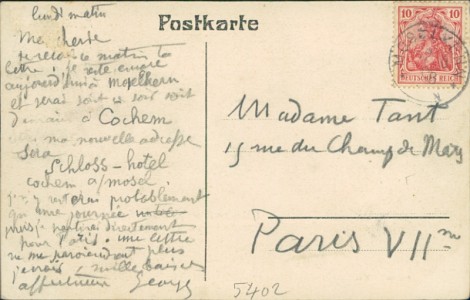 lundi matin
Postkarte
Ma chérie
je reçois ce matin ta
lettre je reste encore
aujourd'hui à Moselkern
et serai soit ce soir soit
demain à Cochem
ma nouvelle adresse
sera
Schloss-hotel
Cochem a/mosel
j'y resterai probablement
qu'une journée
puis je partirai directement
pour Paris. une lettre
ne me parviendrait plus
mille baisers
affectueux Georges
10 10
DEUTSCHES REICH
Madame Tant
15 rue du Champ de Mars
Paris VII me
5402